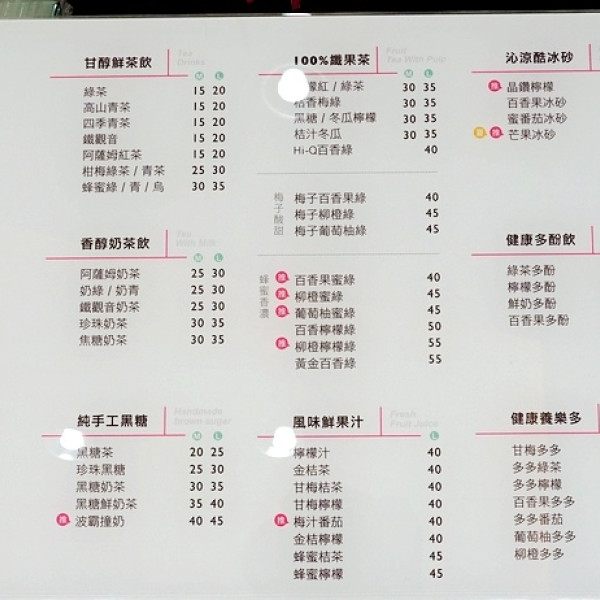 甘醇鮮茶飲
Tea
Drinks
M L
綠茶 15 20
高山青茶 15 20
四季青茶 15 20
鐵觀音 15 20
阿薩姆紅茶 15 20
柑梅綠茶 / 青茶 25 30
蜂蜜綠 / 青 / 烏 30 35
香醇奶茶飲
Tea
With Milk
M L
阿薩姆奶茶 25 30
奶綠 / 奶青 25 30
鐵觀音奶茶 25 30
珍珠奶茶 30 35
焦糖奶茶 30 35
純手工黑糖
Handmade
brown sugar
M L
黑糖茶 20 25
珍珠黑糖 25 30
黑糖奶茶 30 35
黑糖鮮奶茶 35 40
推 波霸撞奶 40 45
100%纖果茶
Fruit
Tea With Pulp
M L
檬紅 / 綠茶 30 35
桔香梅綠 30 35
黑糖 / 冬瓜檸檬 30 35
桔汁冬瓜 30 35
Hi-Q百香綠 40
梅子酸甜
梅子百香果綠 40
梅子柳橙綠 45
梅子葡萄柚綠 45
蜂蜜香濃
推 百香果蜜綠 40
推 柳橙蜜綠 45
推 葡萄柚蜜綠 45
百香檸檬綠 50
推 柳橙檸檬綠 55
黃金百香綠 55
風味鮮果汁
Fresh
Fruit Juice
L
檸檬汁 40
金桔茶 40
甘梅桔茶 40
甘梅檸檬 40
推 梅汁番茄 40
金桔檸檬 40
蜂蜜桔茶 45
蜂蜜檸檬 45
沁涼酷冰砂
推 晶鑽檸檬
百香果冰砂
蜜番茄冰砂
推 芒果冰砂
健康多酚飲
綠茶多酚
檸檬多酚
鮮奶多酚
百香果多酚
健康養樂多
甘梅多多
多多綠茶
多多檸檬
百香果多多
多多番茄
葡萄柚多多
柳橙多多